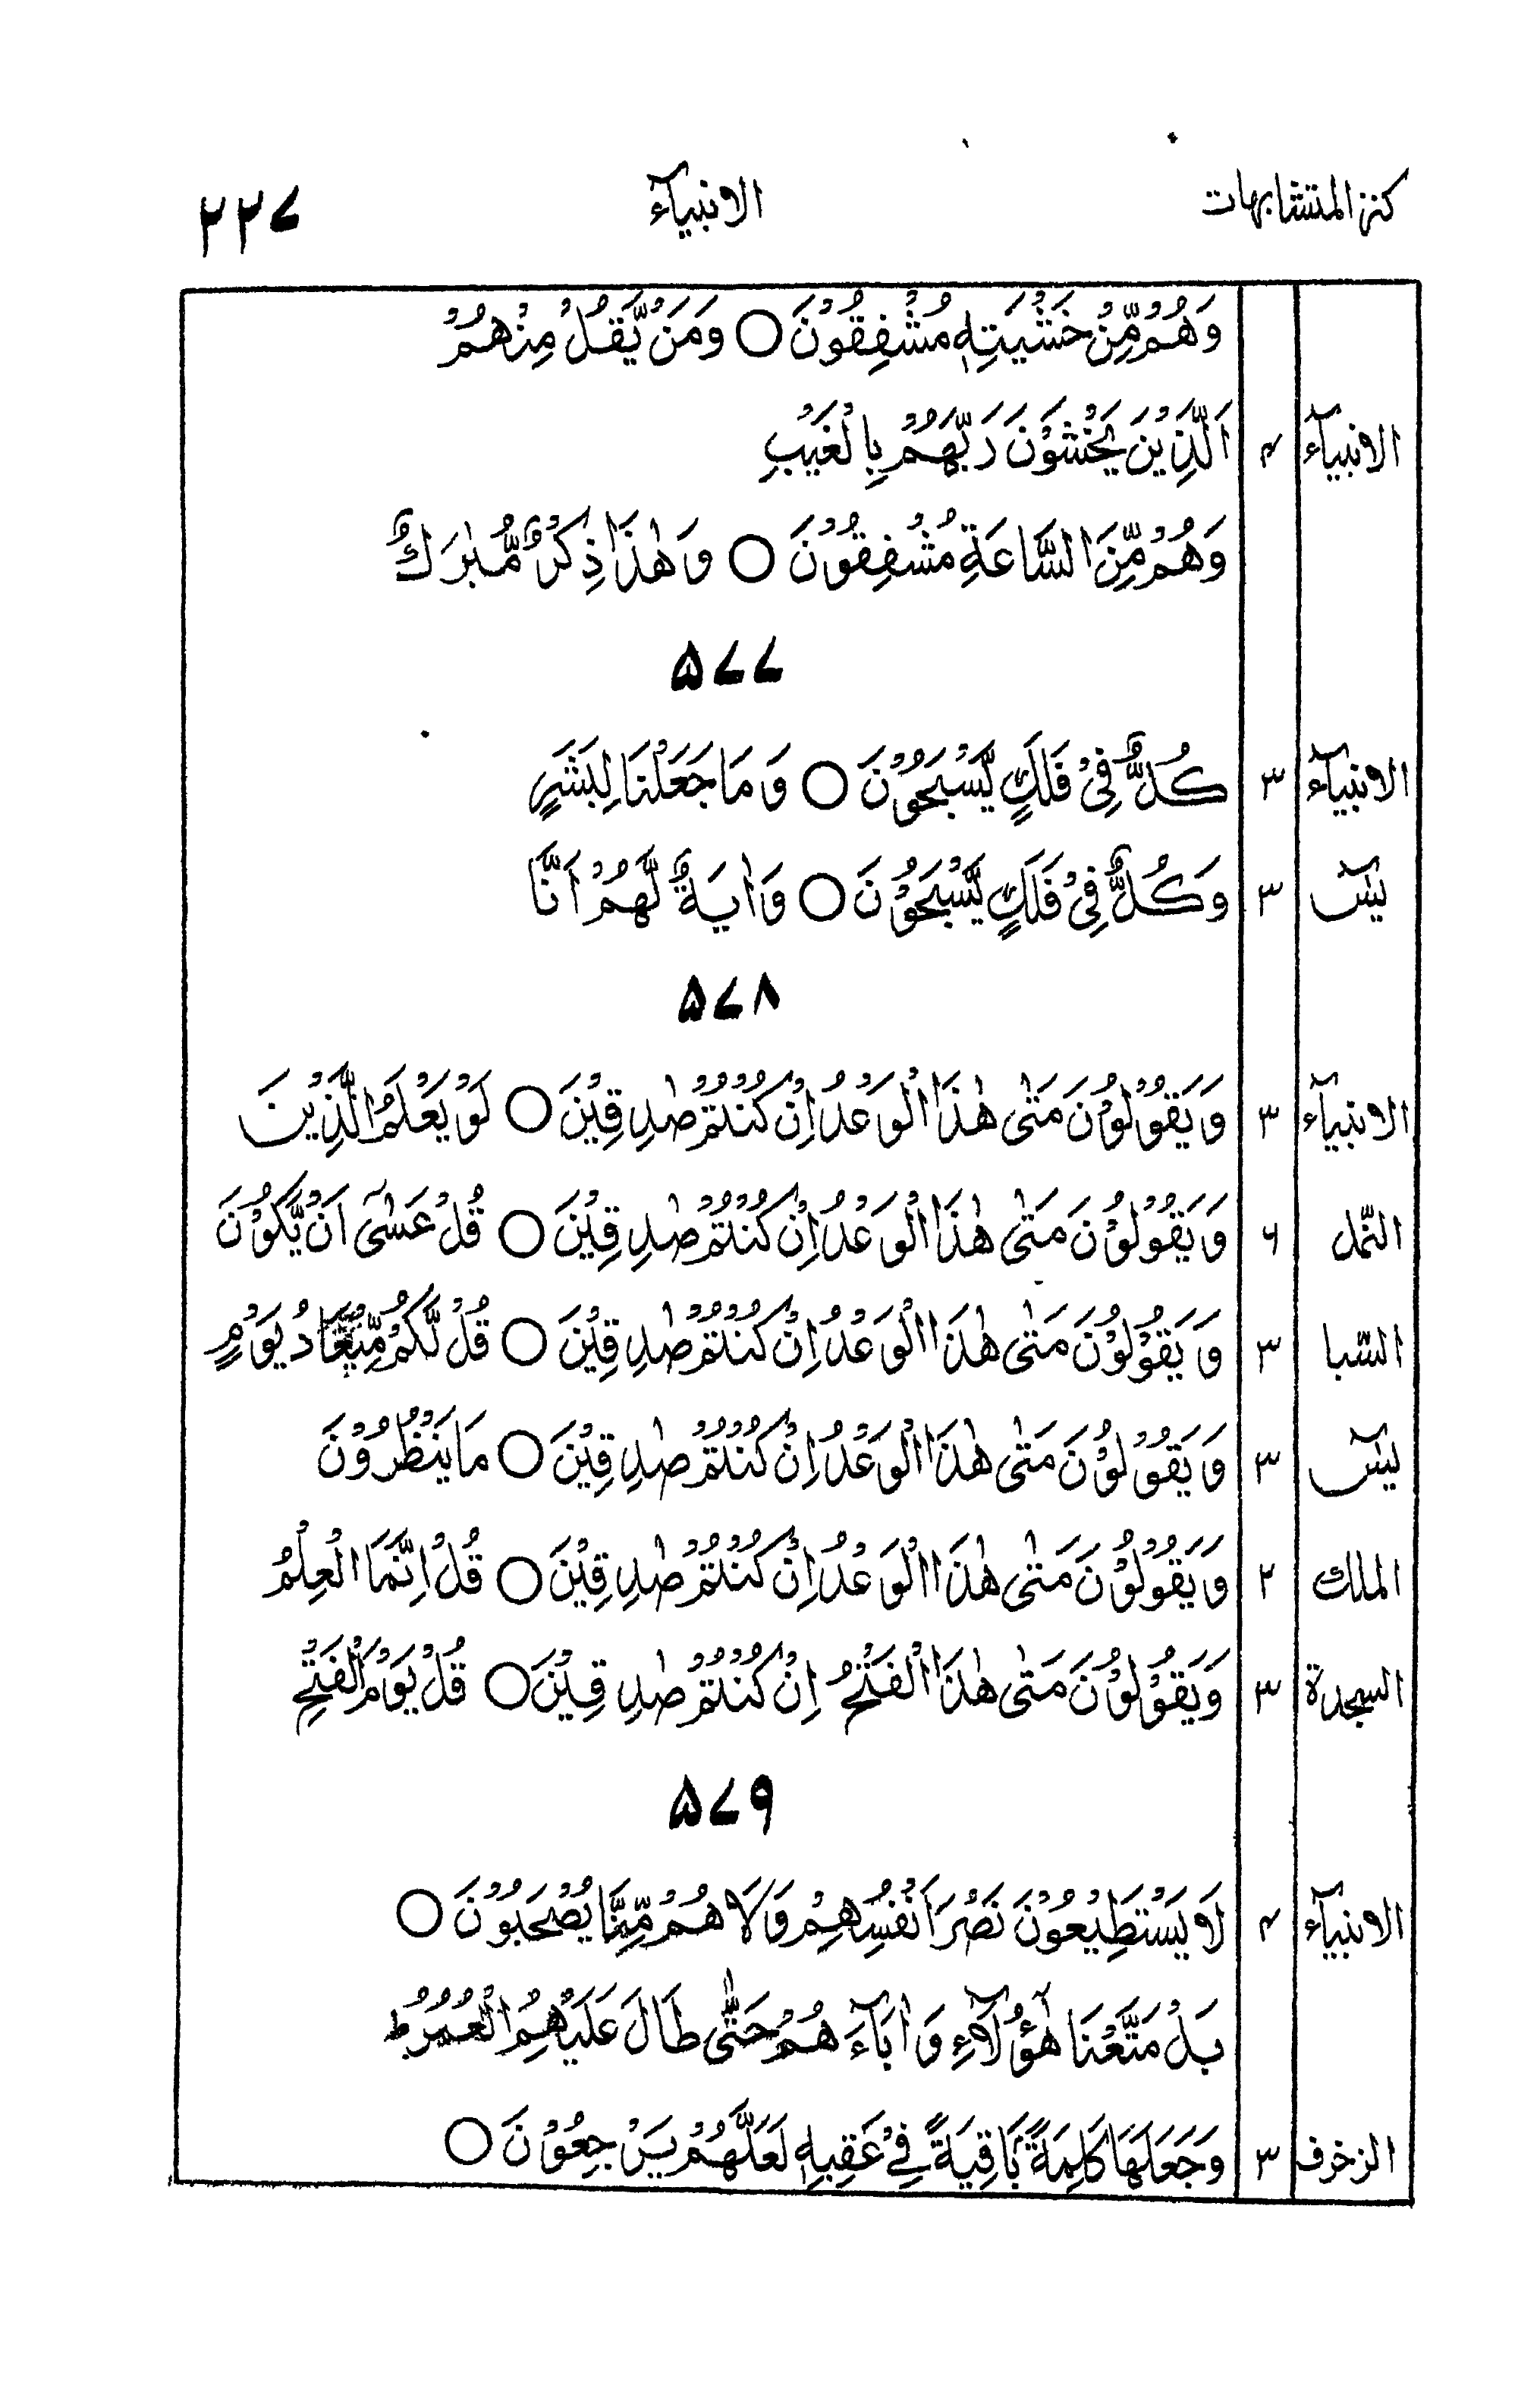 كنز المتشابهات الانبيآء ۲۲۷
وَهُمْ مِّنْ خَشْيَتِهٖ مُشْفِقُوْنَ ○ وَمَنْ يَّقُلْ مِنْهُمْ
الانبيآء ۴ اَلَّذِيْنَ يَخْشَوْنَ رَبَّهُمْ بِالْغَيْبِ
وَهُمْ مِّنَ السَّاعَةِ مُشْفِقُوْنَ ○ وَهٰذَا ذِكْرٌ مُّبٰرَكٌ
۵۷۷
الانبيآء ۳ كُلٌّ فِىْ فَلَكٍ يَّسْبَحُوْنَ ○ وَمَا جَعَلْنَا لِبَشَرٍ
يٰسٓ ۳ وَكُلٌّ فِىْ فَلَكٍ يَّسْبَحُوْنَ ○ وَاٰيَةٌ لَّهُمْ اَنَّا
۵۷۸
الانبيآء ۳ وَيَقُوْلُوْنَ مَتٰى هٰذَا الْوَعْدُ اِنْ كُنْتُمْ صٰدِقِيْنَ ○ لَوْ يَعْلَمُ الَّذِيْنَ
النّمل ۶ وَيَقُوْلُوْنَ مَتٰى هٰذَا الْوَعْدُ اِنْ كُنْتُمْ صٰدِقِيْنَ ○ قُلْ عَسٰٓى اَنْ يَّكُوْنَ
السّبا ۳ وَيَقُوْلُوْنَ مَتٰى هٰذَا الْوَعْدُ اِنْ كُنْتُمْ صٰدِقِيْنَ ○ قُلْ لَّكُمْ مِّيْعَادُ يَوْمٍ
يٰسٓ ۳ وَيَقُوْلُوْنَ مَتٰى هٰذَا الْوَعْدُ اِنْ كُنْتُمْ صٰدِقِيْنَ ○ مَا يَنْظُرُوْنَ
الملك ۲ وَيَقُوْلُوْنَ مَتٰى هٰذَا الْوَعْدُ اِنْ كُنْتُمْ صٰدِقِيْنَ ○ قُلْ اِنَّمَا الْعِلْمُ
السجدة ۳ وَيَقُوْلُوْنَ مَتٰى هٰذَا الْفَتْحُ اِنْ كُنْتُمْ صٰدِقِيْنَ ○ قُلْ يَوْمَ الْفَتْحِ
۵۷۹
الانبيآء ۴ لَا يَسْتَطِيْعُوْنَ نَصْرَ اَنْفُسِهِمْ وَلَا هُمْ مِّنَّا يُصْحَبُوْنَ ○
بَلْ مَتَّعْنَا هٰٓؤُلَآءِ وَاٰبَآءَهُمْ حَتّٰى طَالَ عَلَيْهِمُ الْعُمُرُ ط
الزخرف ۳ وَجَعَلَهَا كَلِمَةًۢ بَاقِيَةً فِىْ عَقِبِهٖ لَعَلَّهُمْ يَرْجِعُوْنَ ○